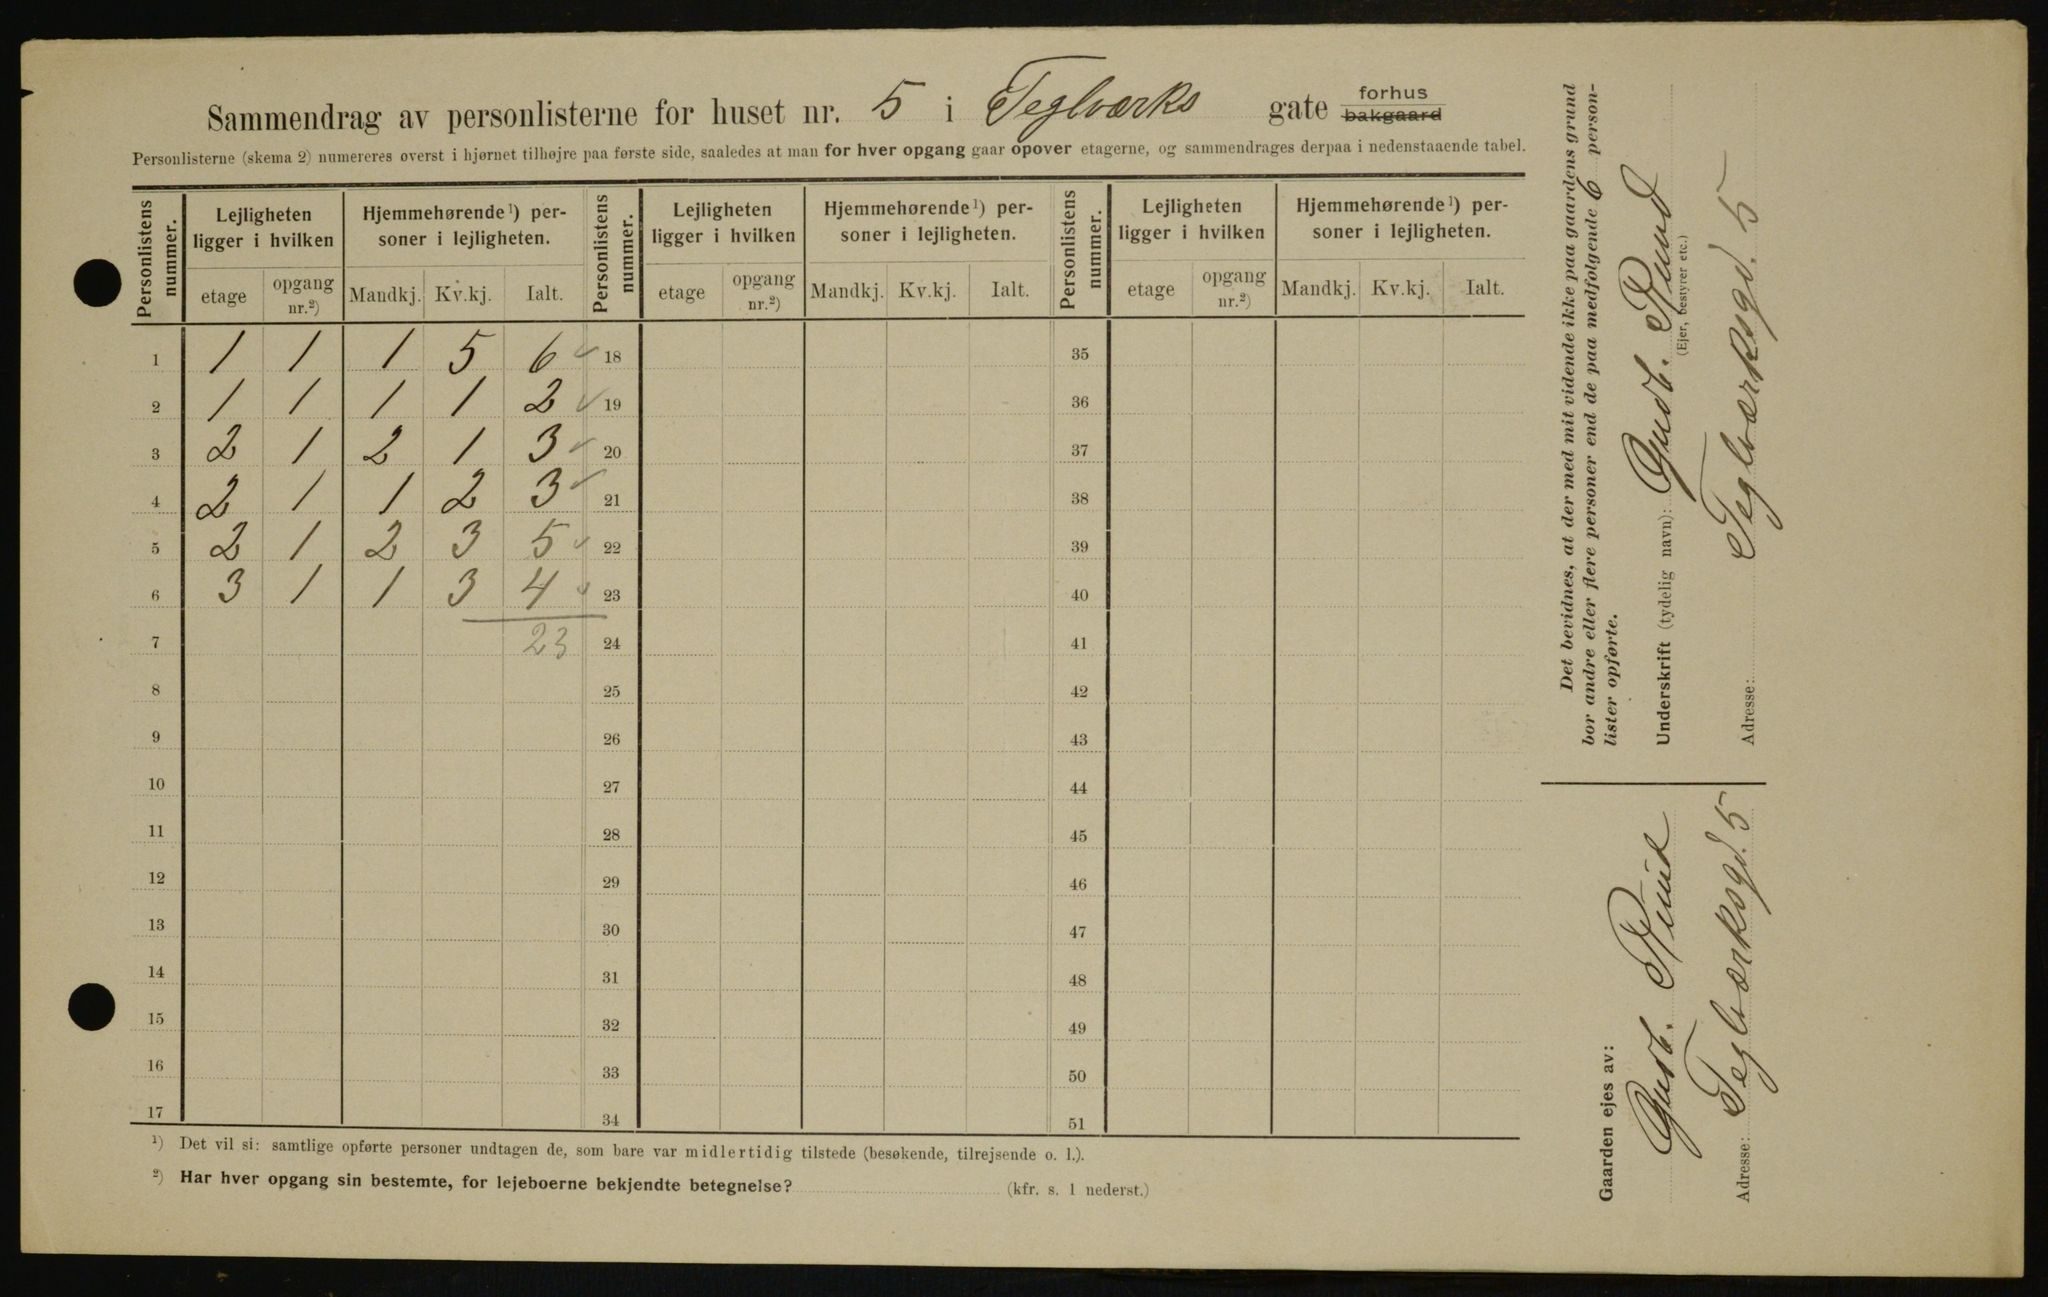 Sammendrag av personlisterne for huset nr. 5 i Teglværks gate forhus bakgaard
Personlisterne (skema 2) numereres øverst i hjørnet tilhøjre paa første side, saaledes at man for hver opgang gaar opover etagerne, og sammendrages derpaa i nedenstaaende tabel.
Personlistens nummer. Lejligheten ligger i hvilken Hjemmehørende¹) personer i lejligheten. Personlistens nummer. Lejligheten ligger i hvilken Hjemmehørende¹) personer i lejligheten. Personlistens nummer. Lejligheten ligger i hvilken Hjemmehørende¹) personer i lejligheten.
etage opgang nr.²) Mandkj. Kv.kj. Ialt. etage opgang nr.²) Mandkj. Kv.kj. Ialt. etage opgang nr.²) Mandkj. Kv.kj. Ialt.
1 1 1 1 5 6 ✓ 18 35
2 1 1 1 1 2 ✓ 19 36
3 2 1 2 1 3 ✓ 20 37
4 2 1 1 2 3 ✓ 21 38
5 2 1 2 3 5 ✓ 22 39
6 3 1 1 3 4 ✓ 23 40
7 23 24 41
8 25 42
9 26 43
10 27 44
11 28 45
12 29 46
13 30 47
14 31 48
15 32 49
16 33 50
17 34 51
¹) Det vil si: samtlige opførte personer undtagen de, som bare var midlertidig tilstede (besøkende, tilrejsende o. l.).
²) Har hver opgang sin bestemte, for lejeboerne bekjendte betegnelse? (kfr. s. 1 nederst.)
Det bevidnes, at der med mit vidende ikke paa gaardens grund
bor andre eller flere personer end de paa medfølgende 6 person-
lister opførte.
Underskrift (tydelig navn): Gudb. Ruud
(Ejer, bestyrer etc.)
Adresse: Teglværksgd. 5
Gaarden ejes av:
Gudb. Ruud
Adresse: Teglværksgd. 5